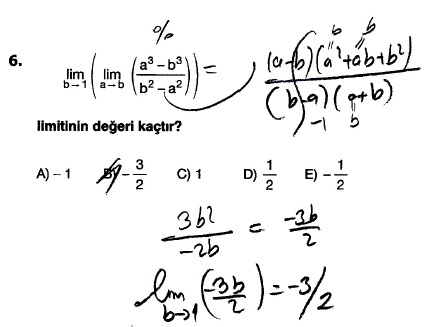 %
6. lim b→1 ( lim a→b ( (a³ − b³) / (b² − a²) ) ) = (a-b)(a²+ab+b²) / (b-a)(a+b)
b b
-1 b
limitinin değeri kaçtır?
A) – 1 B) – 3/2 C) 1 D) 1/2 E) – 1/2
3b² / -2b = -3b / 2
lim b→1 ( -3b / 2 ) = -3/2